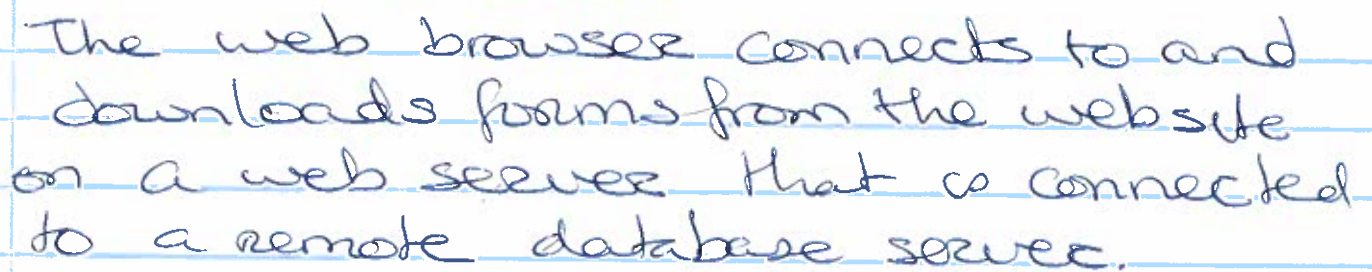 The web browser connects to and
downloads forms from the website
on a web server that is connected
to a remote database server.